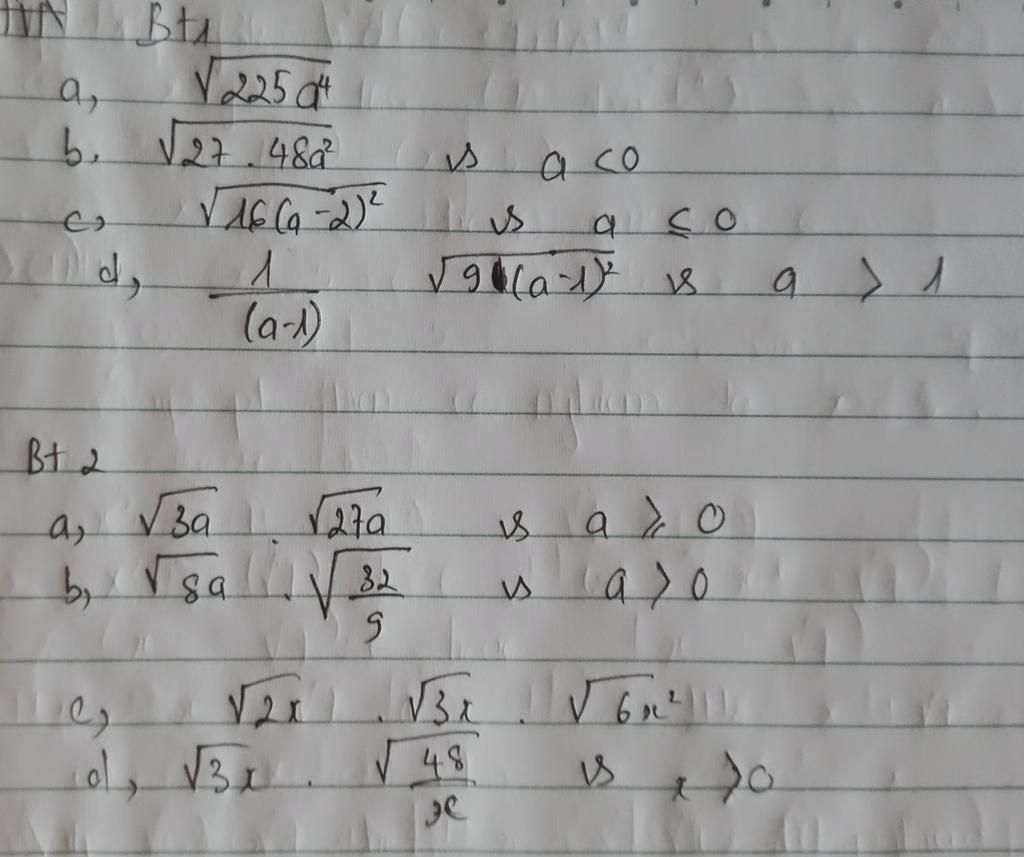 Bt1
a, √225a⁴
b. √27 . 48a² vs a <0
c, √16(a-2)² vs a ≤ 0
d, 1/(a-1) √9(a-1)² vs a > 1
Bt 2
a, √3a . √27a vs a ≥ 0
b, √8a . √32/9 vs a > 0
c, √2x . √3x . √6x²
d, √3x . √48/x vs x >0